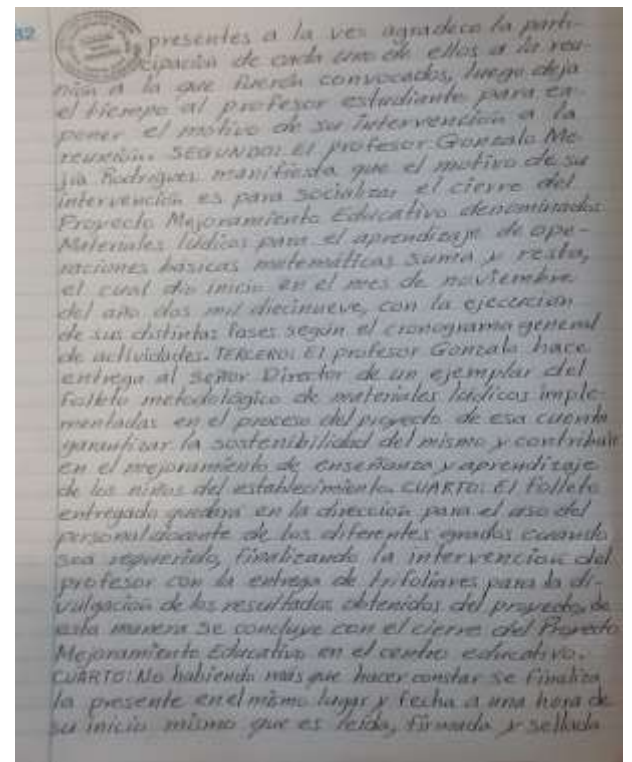 32
presentes a la ves agradece la parti-
cipación de cada uno de ellos a la reu-
nión a la que fueron convocados, luego deja
el tiempo al profesor estudiante para ex-
poner el motivo de su intervención a la
reunión. SEGUNDO: El profesor Gonzalo Me-
jía Rodriguez manifiesta que el motivo de su
intervención es para socializar el cierre del
Proyecto Mejoramiento Educativo denominado
Materiales lúdicos para el aprendizaje de ope-
raciones básicas matemáticas suma y resta,
el cual dio inicio en el mes de noviembre
del año dos mil diecinueve, con la ejecución
de sus distintas fases según el cronograma general
de actividades. TERCERO: El profesor Gonzalo hace
entrega al Señor Director de un ejemplar del
Folleto metodológico de materiales lúdicos imple-
mentadas en el proceso del proyecto de esa cuenta
garantizar la sostenibilidad del mismo y contribuir
en el mejoramiento de enseñanza y aprendizaje
de los niños del establecimiento. CUARTO: El folleto
entregado quedara en la dirección para el uso del
personal docente de los diferentes grados cuando
sea requerido, finalizando la intervención del
profesor con la entrega de trifoliares para la di-
vulgación de los resultados obtenidos del proyecto, de
esta manera se concluye con el cierre del Proyecto
Mejoramiento Educativo en el centro educativo.
CUARTO: No habiendo más que hacer constar se finaliza
la presente en el mismo lugar y fecha a una hora de
su inicio mismo que es leída, firmada y sellada